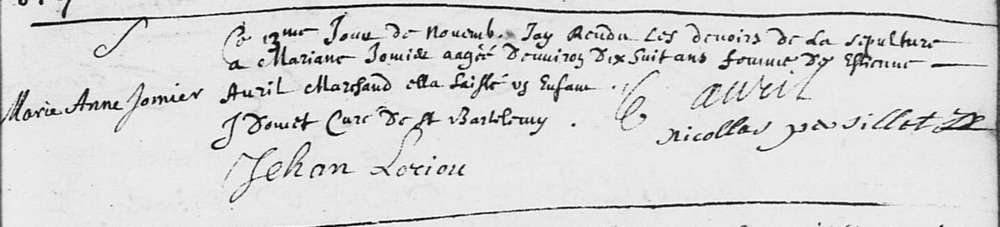 S
Marie Anne Jomier
Ce 13me Jour de Novemb. Jay Rendu Les devoirs de La sepulture
a Mariane Jomier aagée Denviron Dix huit ans femme De Estienne
Avril Marchand ella laissé un Enfant . E avril
J Domet Curé De St Bartelemy . Nicollas persillet
Jehan Loriou